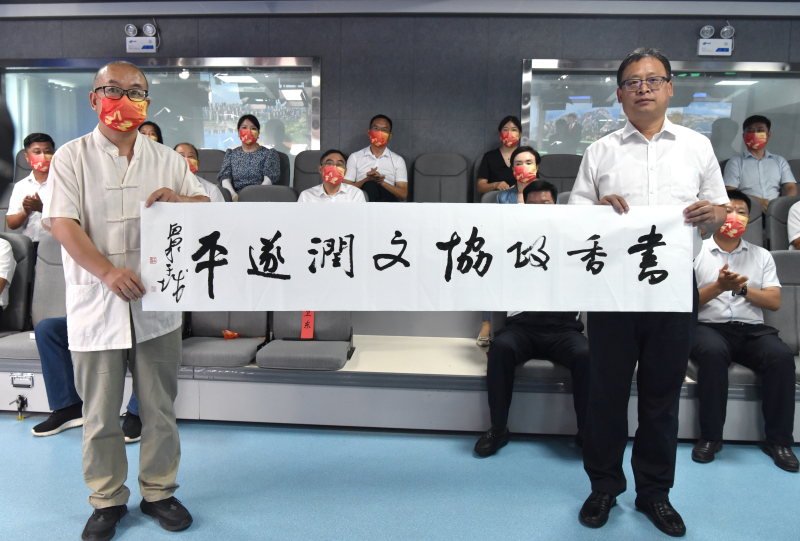 書香政協文潤遂平